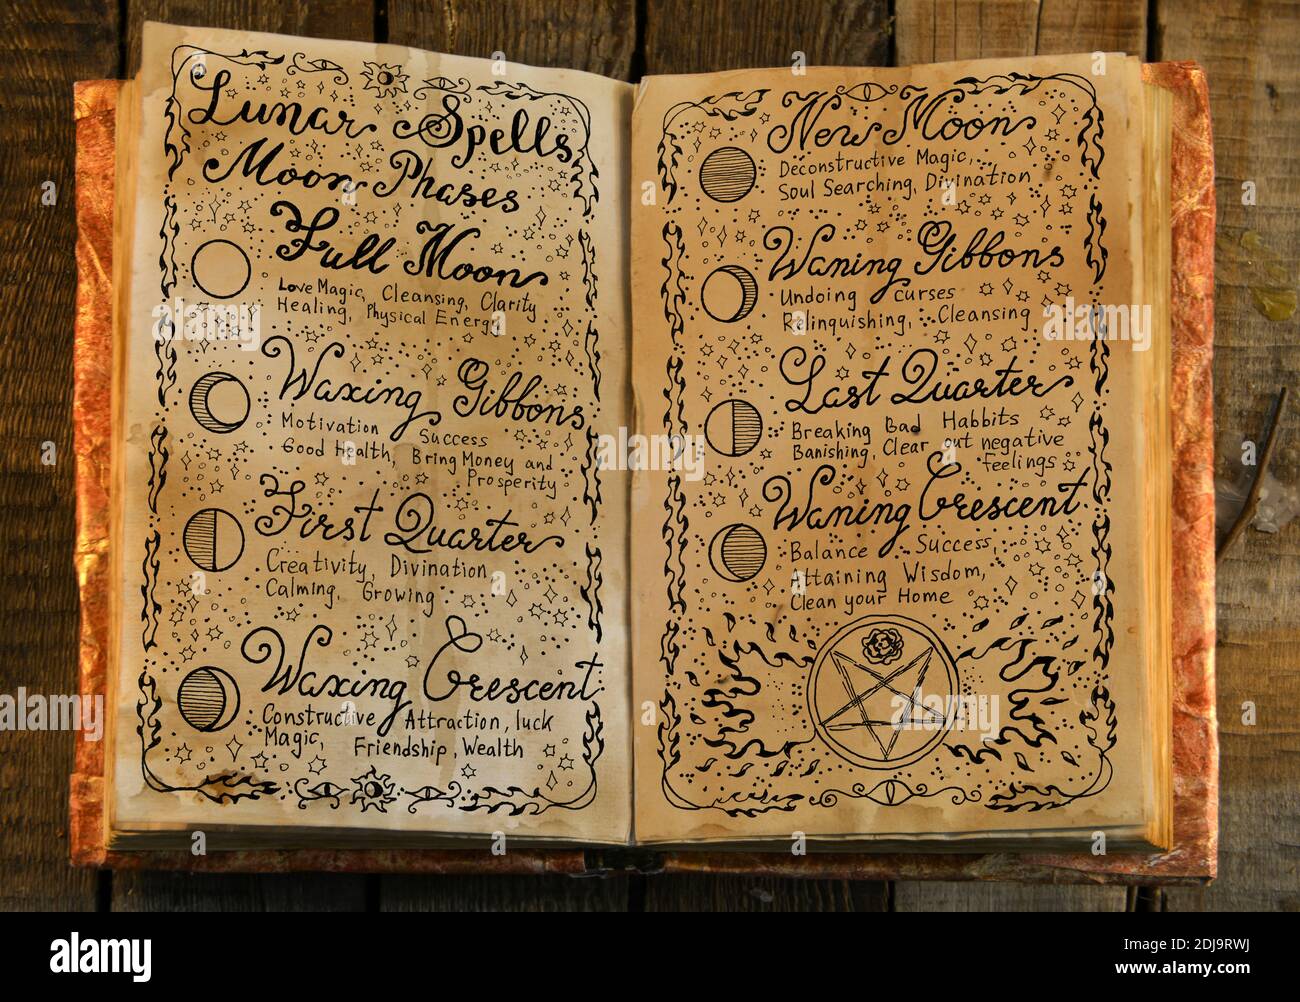 Lunar Spells
Moon Phases
Full Moon
Love Magic, Cleansing, Clarity
Healing, Physical Energy
Waxing Gibbons
Motivation Success
Good Health, Bring Money and
Prosperity
First Quarter
Creativity, Divination
Calming, Growing
Waxing Crescent
Constructive Attraction, luck
Magic, Friendship, Wealth
New Moon
Deconstructive Magic,
Soul Searching, Divination
Waning Gibbons
Undoing curses
Relinquishing, Cleansing
Last Quarter
Breaking Bad Habbits
Banishing, Clear out negative
feelings
Waning Crescent
Balance Success,
Attaining Wisdom,
Clean your Home
alamy
Image ID: 2DJ9RWJ
www.alamy.com